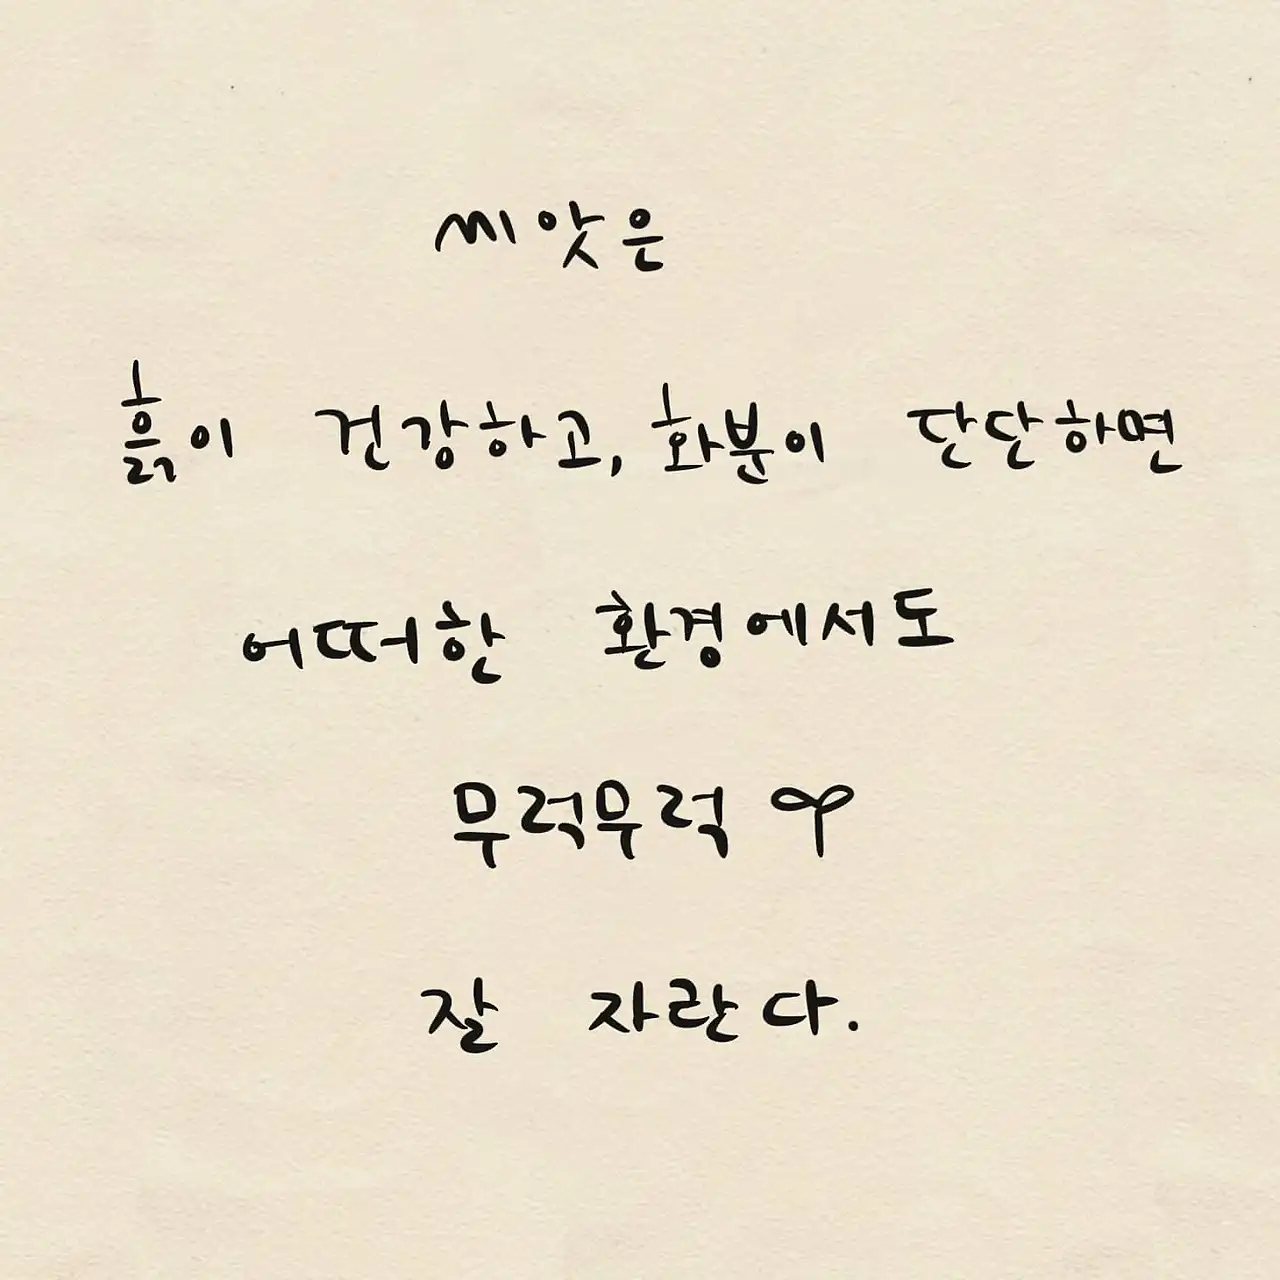 씨앗은
흙이 건강하고, 화분이 단단하면
어떠한 환경에서도
무럭무럭
잘 자란다.